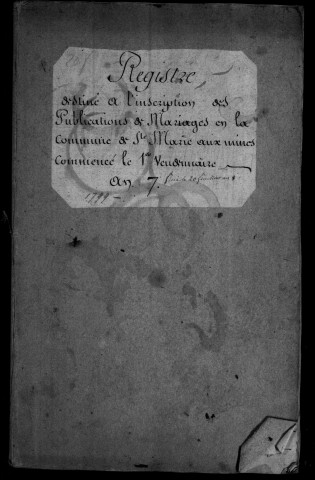 Registre
destiné a l'inscription des
Publications de Mariages en la
Commune de Ste Marie aux mines
Commencé le 1er Vendemiaire
an 7.
1798